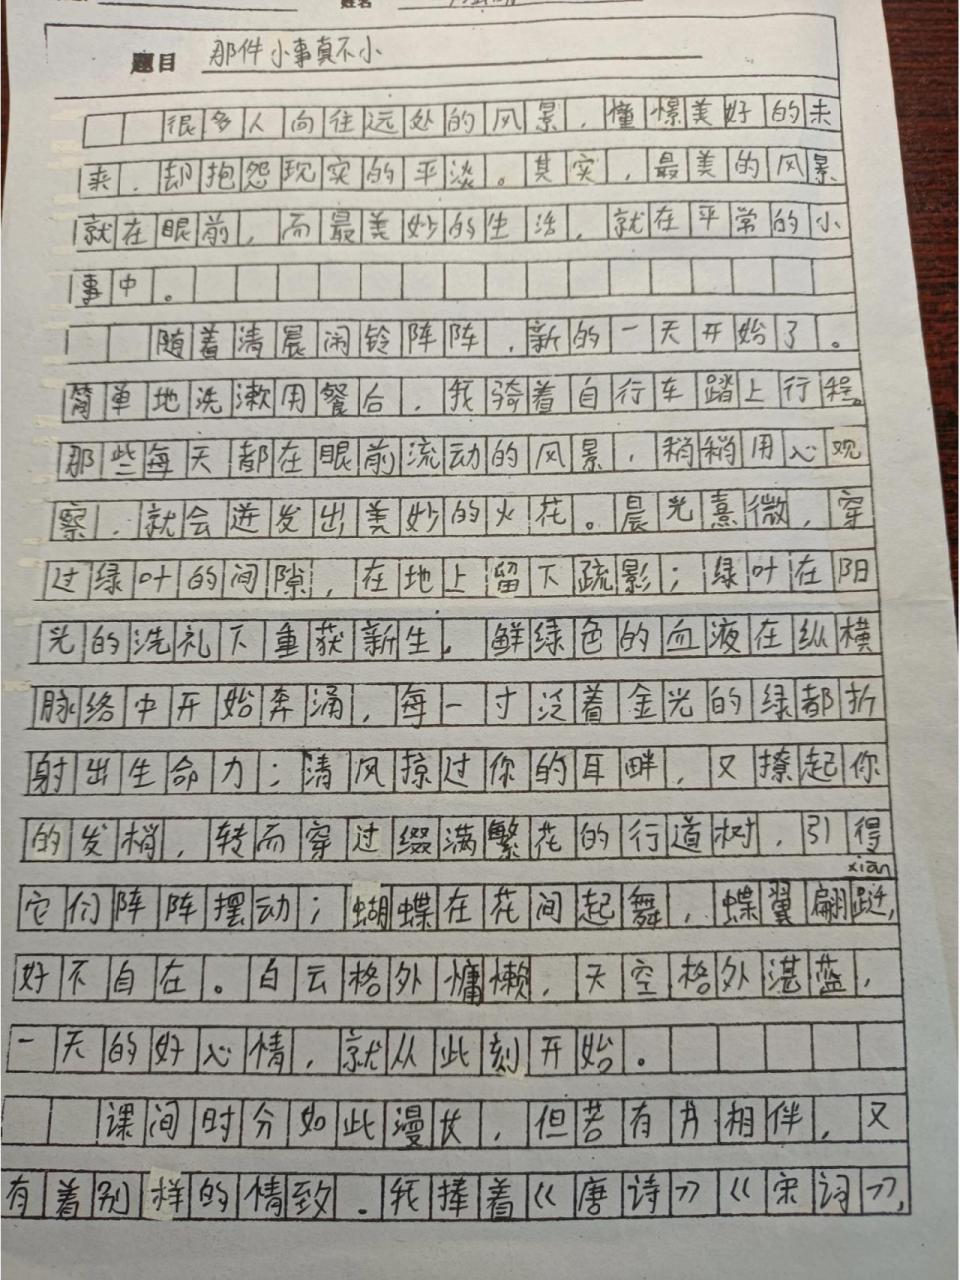 姓名
题目 那件小事真不小
很多人向往远处的风景，憧憬美好的未
来，却抱怨现实的平淡。其实，最美的风景
就在眼前，而最美妙的生活，就在平常的小
事中。
随着清晨闹铃阵阵，新的一天开始了。
简单地洗漱用餐后，我骑着自行车踏上行程。
那些每天都在眼前流动的风景，稍稍用心观
察，就会迸发出美妙的火花。晨光熹微，穿
过绿叶的间隙，在地上留下疏影；绿叶在阳
光的洗礼下重获新生，鲜绿色的血液在纵横
脉络中开始奔涌，每一寸泛着金光的绿都折
射出生命力；清风掠过你的耳畔，又撩起你
的发梢，转而穿过缀满繁花的行道树，引得
xian
它们阵阵摆动；蝴蝶在花间起舞，蝶翼翩跹，
好不自在。白云格外慵懒，天空格外湛蓝，
一天的好心情，就从此刻开始。
课间时分如此漫长，但若有书相伴，又
有着别样的情致。我捧着《唐诗》《宋词》，